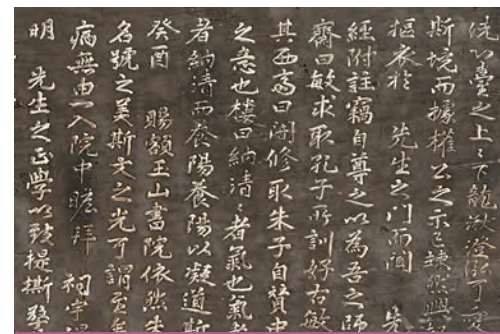 臺之上之下龍湫澄渟可
斯境而據權公之示已竦然興
摳衣於 先生之門而聞
經附註竊自尊之以為吾之師
齋曰敏求取孔子所訓好古敏
其西齋曰闇修取朱子自贊中
之意也樓曰納清〻者氣也氣
者納清而養陽養陽以凝道斯
癸酉 賜額玉山書院依然
名號之美斯文之光可謂
病無由一入院中瞻拜 祠宇
明 先生之正學以致提撕警